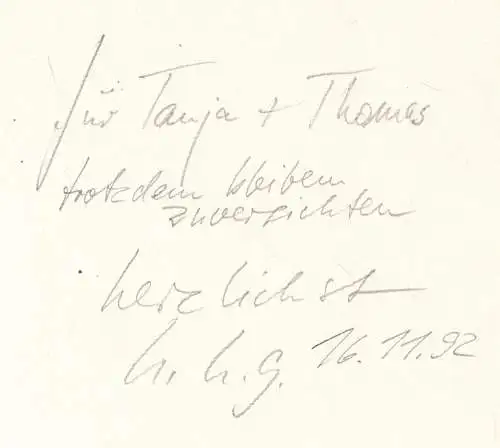 für Tanja + Thomas
trotzdem bleiben
herzlichst
h. h. g. 16.11.92